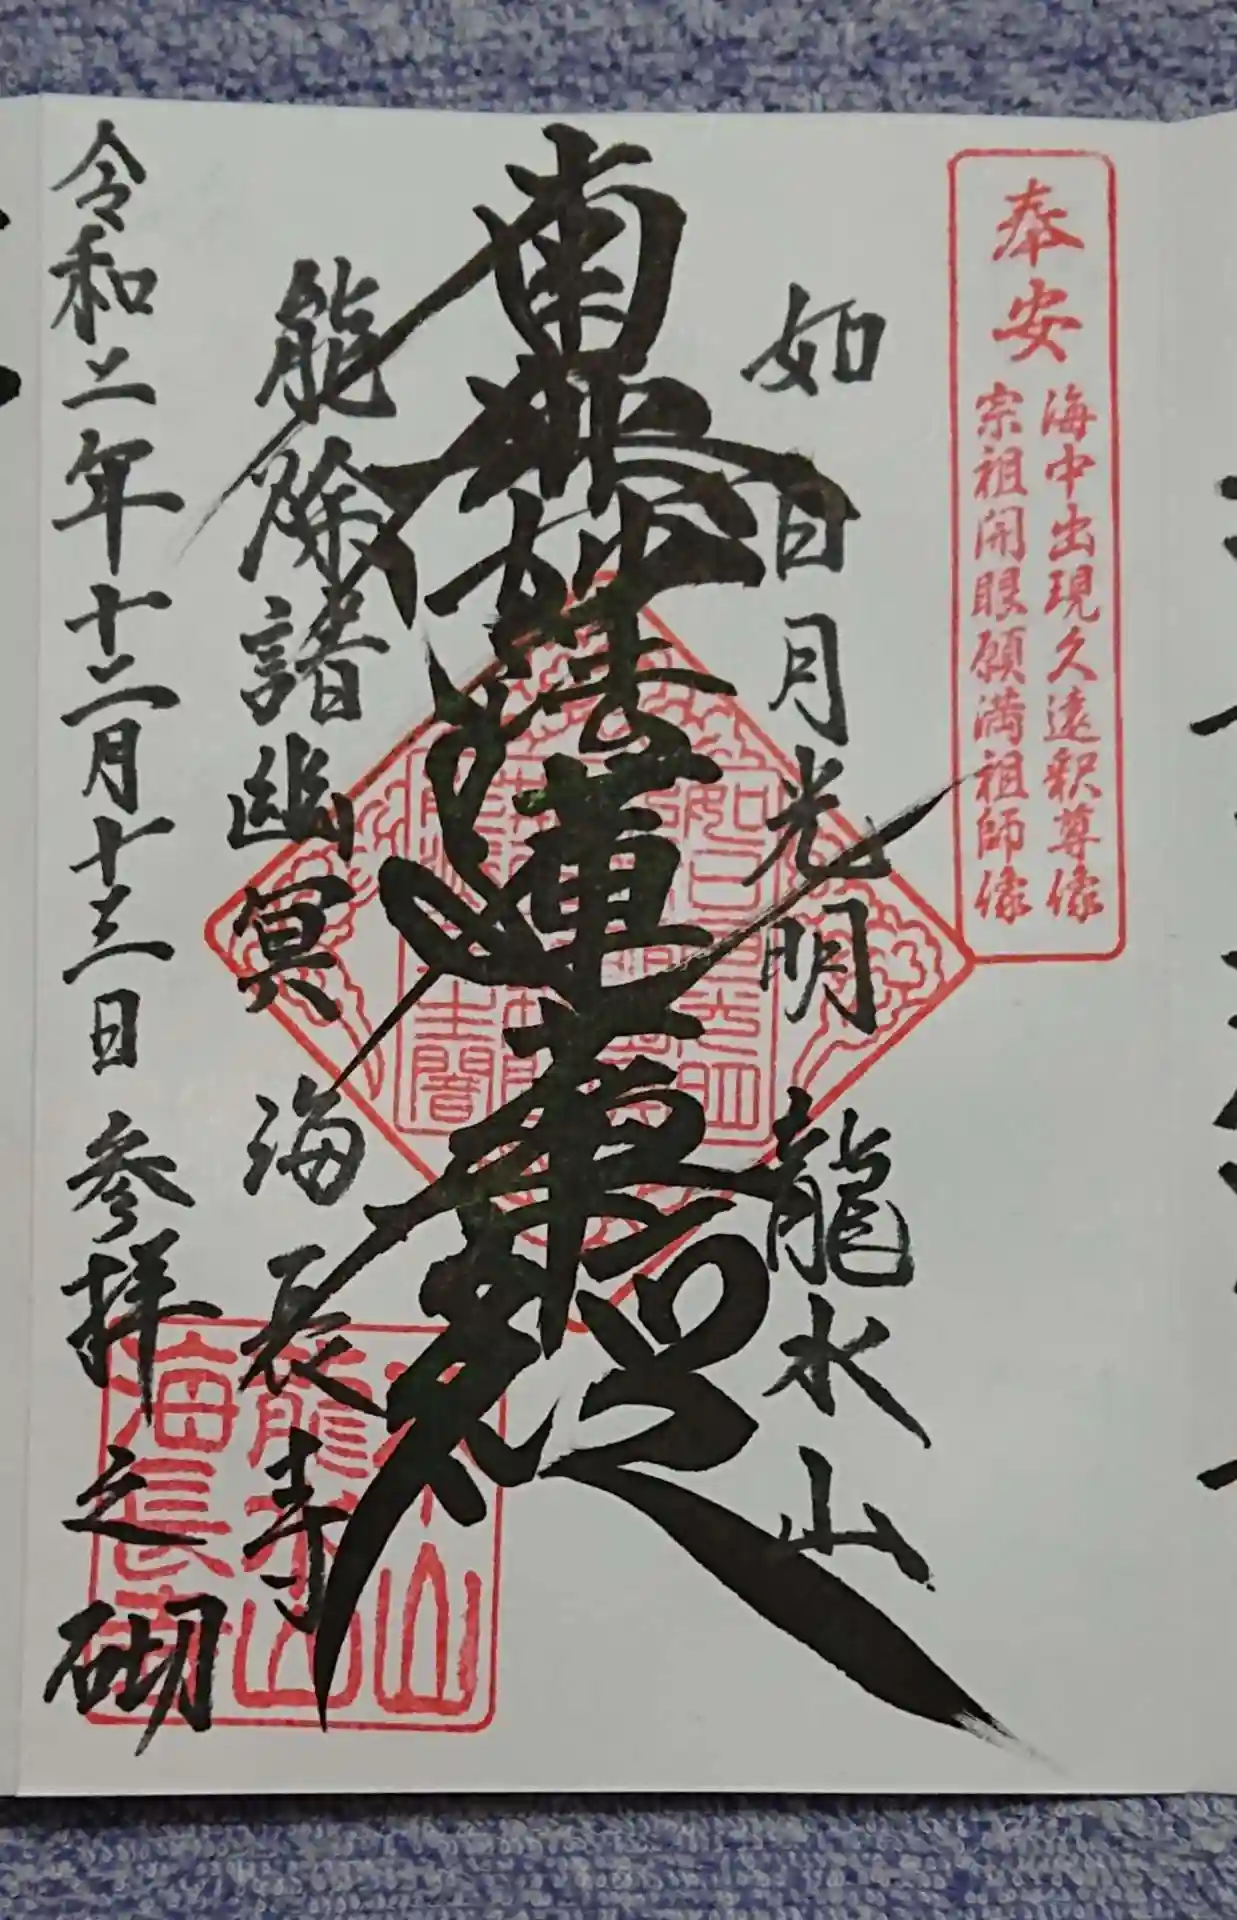 奉安
海中出現久遠釈尊像
宗祖開眼願満祖師像
如日月光明 龍水山
南無妙法蓮華経
能除諸幽冥 海長寺
令和二年十二月十三日 参拝之砌